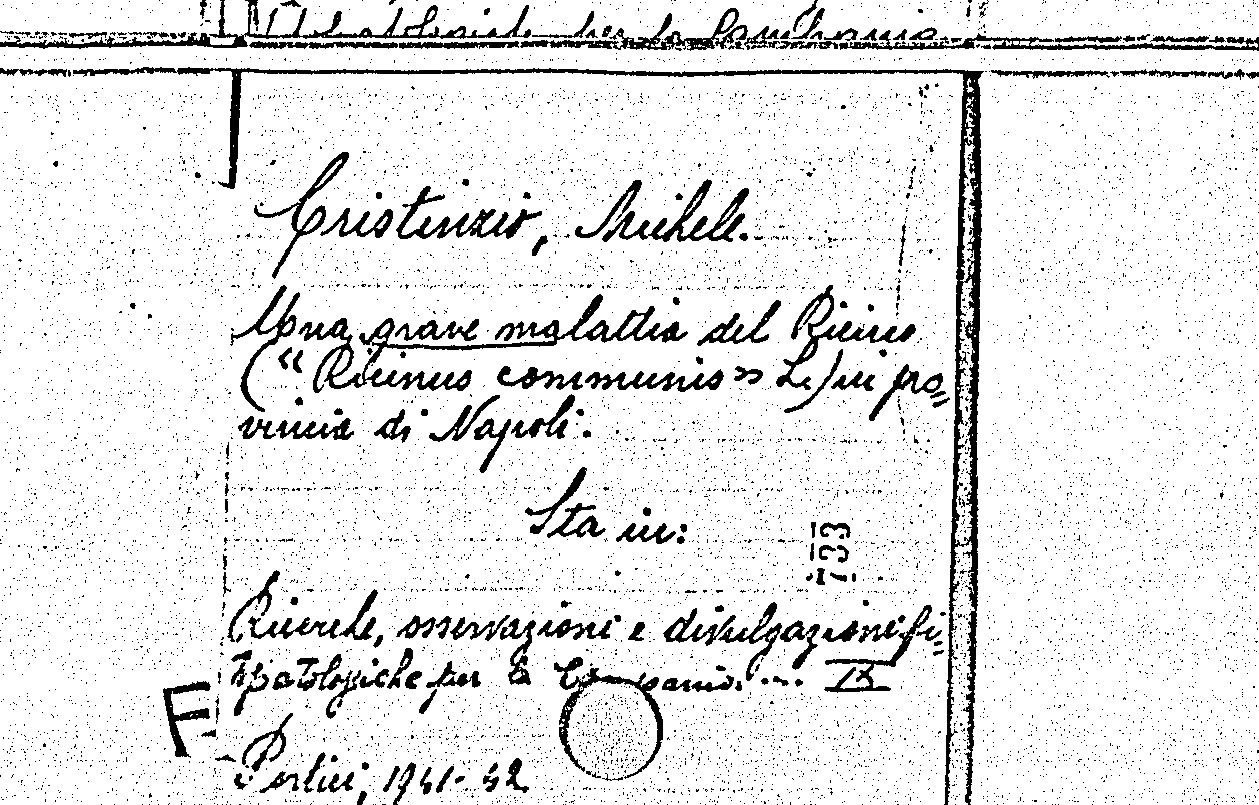 per la Campania
Cristinzio, Michele.
Una grave malattia del Ricino
(“Ricinus communis” L.) in pro=
vincia di Napoli.
Sta in:
133
Ricerche, osservazioni e divulgazioni fi=
topatologiche per la Campania .... IX
F
Portici, 1941-42